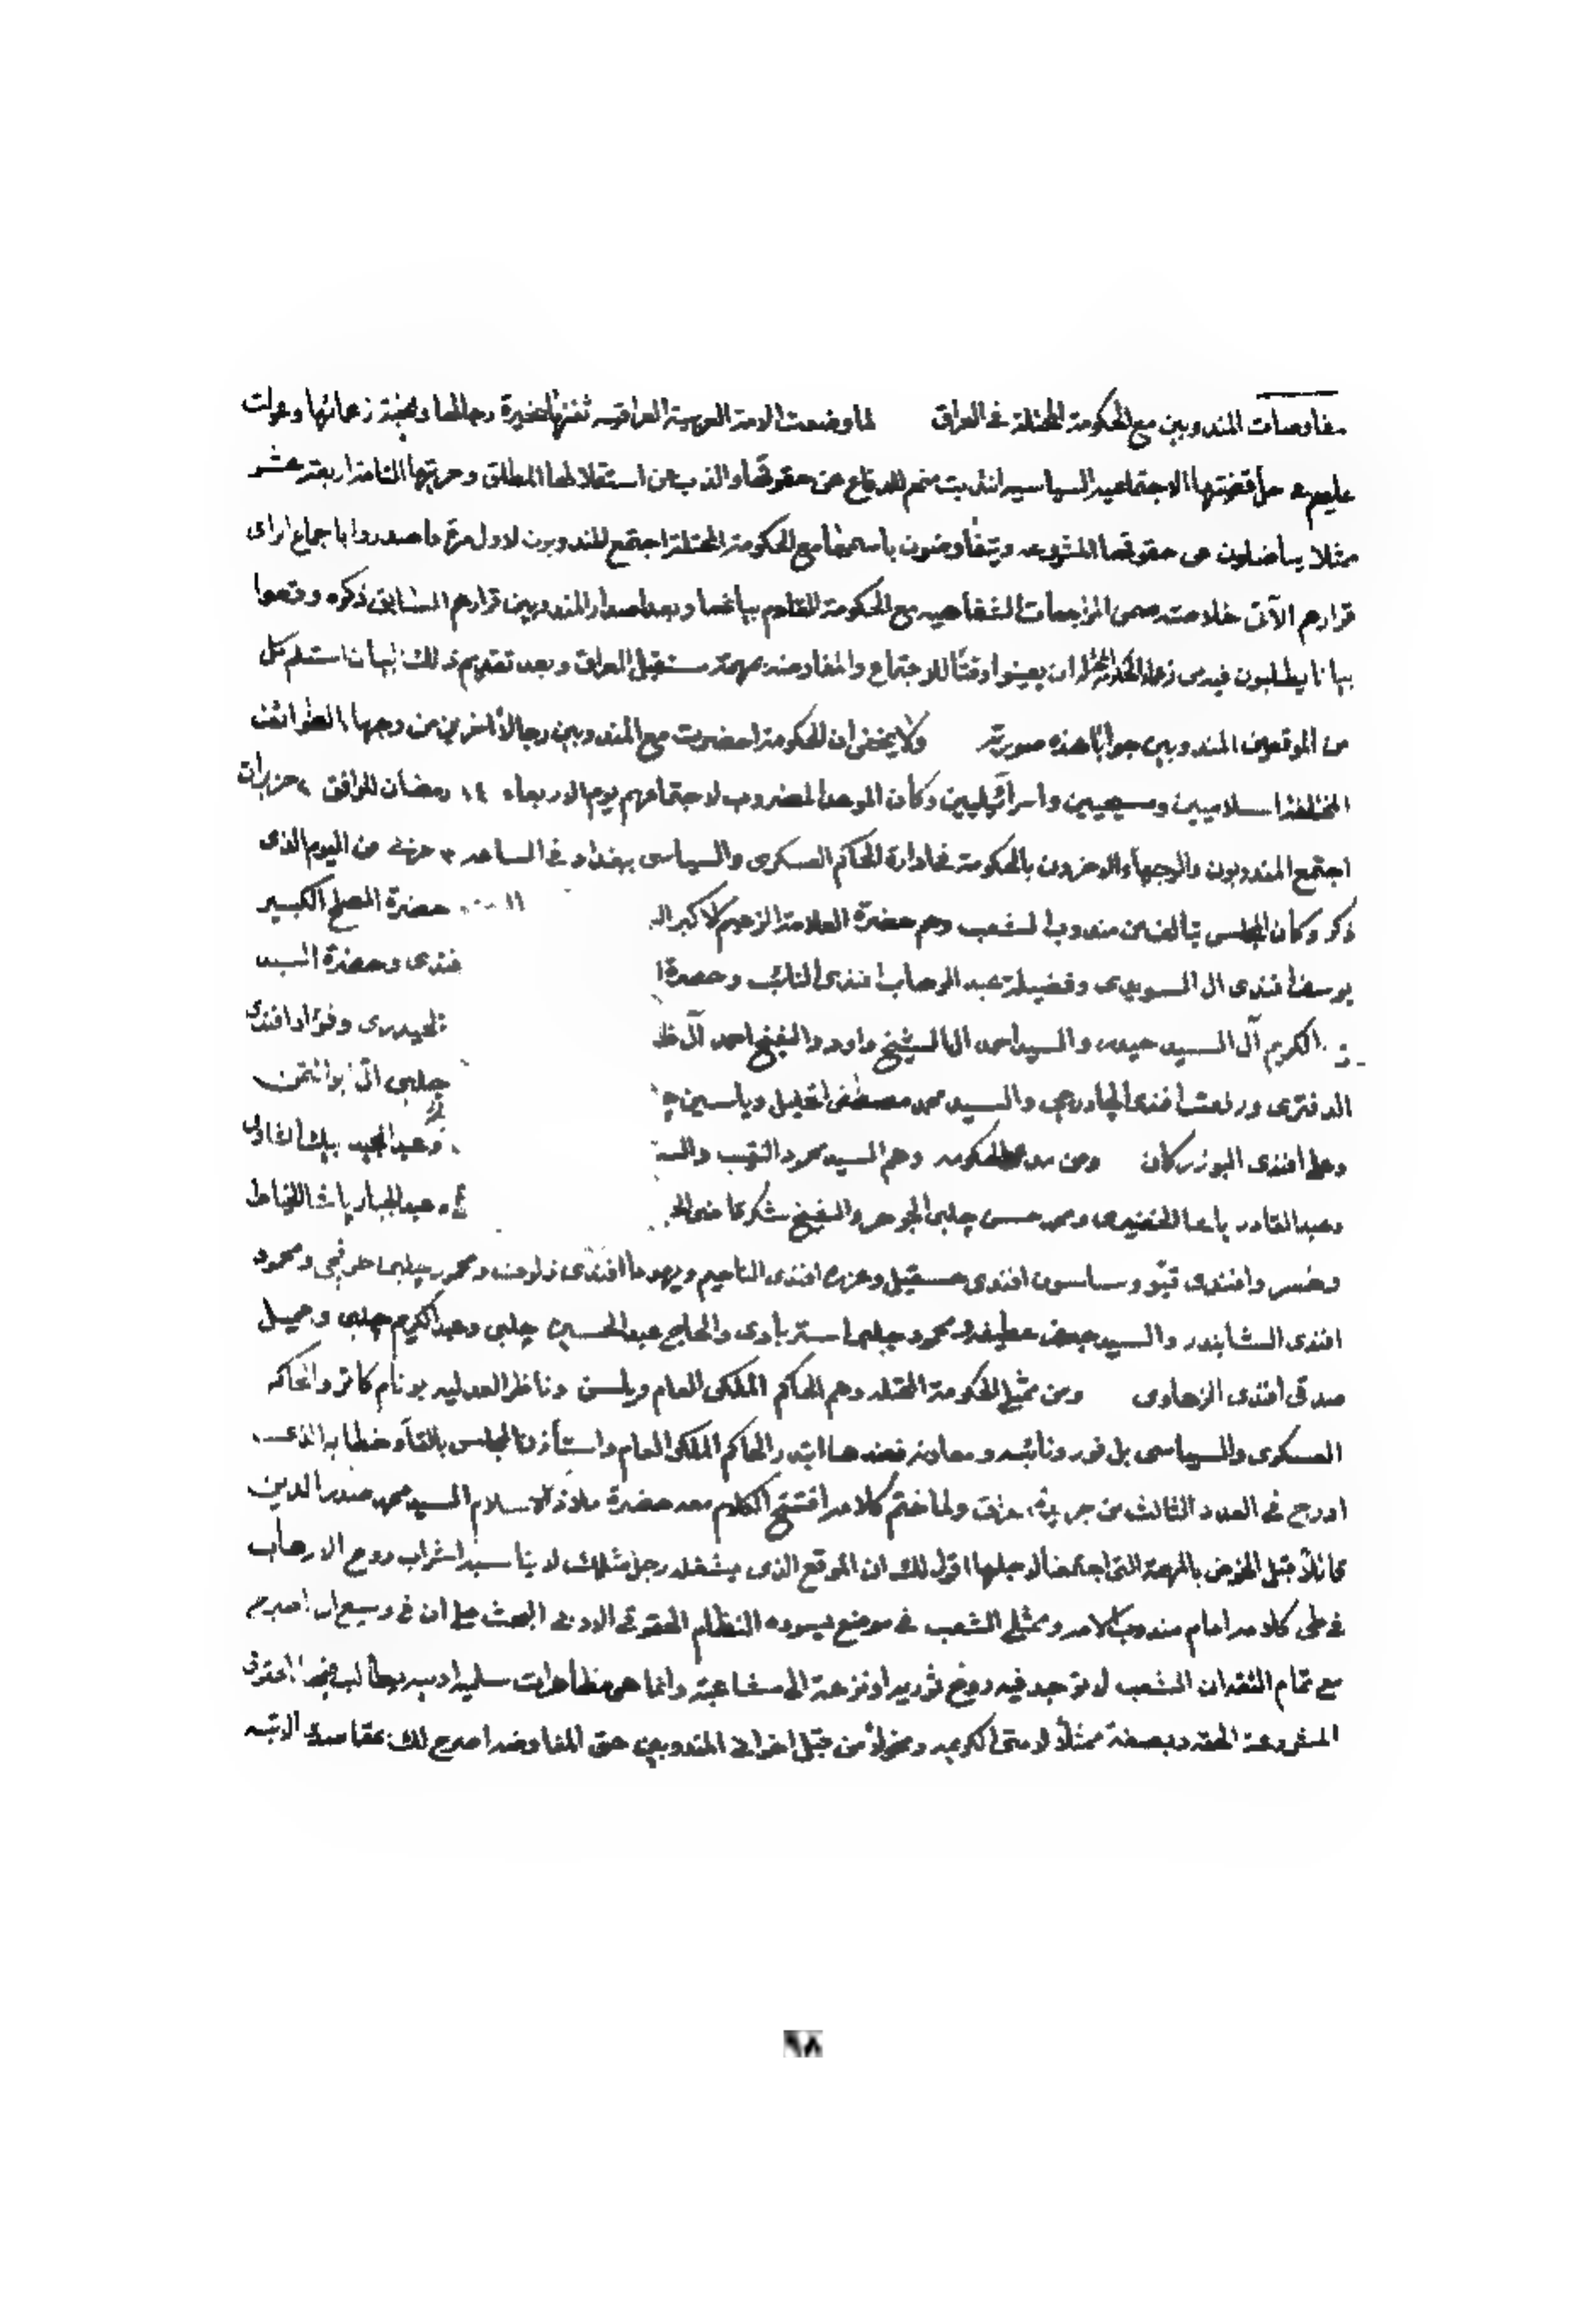 مفاوضات المندوبين مع الحكومة المحتلة في العراق لما وضعت الامة العربية العراقيه ثقتها بخيرة رجالها ونخبة زعمائها وعولت
عليهم في حل قضيتها الاجتماعيه السياسيه انتدبت منهم للدفاع عن حقوقها والذب عن استقلالها المطلق وحريتها التامة اربعة عشر
ممثلا يناضلون عن حقوقها المشروعه ويتفاوضون باسمها مع الحكومة المحتلة اجتمع المندوبون لاول مرة فاصدروا باجماع اراى
قرارهم الآتى خلاصته المراجعات الشفاهيه مع الحكومة وبعد اصدار المندوبين قرارهم السابق ذكره وقعوا
بيانا يطلبون فيه من ان يعينوا وقتًا للاجتماع والمفاوضه بمهمة مستقبل العراق وبعد تقديم ذلك البيان استلم كل
من الموقعين المندوبين جوابًا هذه صورته ولا يخفى ان الحكومة احضرت مع المندوبين رجالا آخرين من وجهاء الطوائف
المختلفة اسلاميين ومسيحيين واسرائيليين وكان الموعد المضروب لاجتماعهم يوم الاربعاء ١٤ رمضان الموافق ٢ حزيران
اجتمع المندوبون والوجهاء بالحكومة في ادارة الحاكم العسكرى والسياسى ببغداد في الساعه من اليوم الذى
ذكر وكان المجلس يتألف من مندوبى الشعب وهم حضرة العلامة الزعيم الاكبر حضرة المصلح الكبير
يوسف افندى ال السويدى وفضيلة عبد الوهاب افندى النائب وحضرة فندى وحضرة السيد
الكريم آل السيد حيدر والسيد احمد ال الشيخ داود والشيخ احمد آل الحيدرى وفؤاد افندى
الدفترى ورفعت افندى الجادرجى والسيد محمد مصطفى الخليل وياسين چلبى ال ابو التمن
وعلى افندى البوزركان ومن الحكومه وهم السيد محمود النقيب وعبد المجيد بيك الشاوى
وعبد القادر باشا الخضيرى ومحمد حسن چلبى الجوهر والشيخ شكر قاضى وعبد الجبار باشا الخياط
وخسر وافندى قيو وساسون افندى حسقيل وعزره افندى مناحيم ويهودا افندى زلوف ومحمود چلبى ومحمود
افندى الشابندر والسيد جعفر عطيفه ومحمود چلبى استربادى والحاج عبد الحسين چلبى وعبد الكريم چلبى وجميل
صدقى افندى الزهاوى ومن ممثلى الحكومة المحتله وهم الحاكم الملكى العام ويلسن وناظر العدليه بونام كارتر والحاكم
العسكرى والسياسى بلفور ونائبه ومعاونه فعندها ابتدر الحاكم الملكى العام واستأذن المجلس بالقاء خطابه الذى
ادرج فى العدد الثالث من جريدة ولما ختم كلامه افتتح الكلام معه حضرة ملاذ الاسلام السيد محمد صدر الدين
قائلاً قبل الخوض بالمهمة التى اجتمعنا لاجلها اقول لك ان الموقع الذى يشغله رجل مثلك لا يناسبه اشراب روح الارهاب
فى طى كلامه امام مندوبى الامه وممثلى الشعب فى موضع يسوده النظام الحقوقى الادبى البحث على ان فى وسعى ان اصرح
مع تمام الثقه ان الشعب لا توجد فيه روح ثوريه او نزعة الى مشاغبة وانما هى مظاهرات سلميه ادبيه يطالب فيها الحقوق
المشروعة الحقه وبصفة ممثلاً لامتى الكريمه ومخولاً من قبل اخوانى المندوبين حق المفاوضه اصرح لك بمقاصدى الاتيه
٩٨